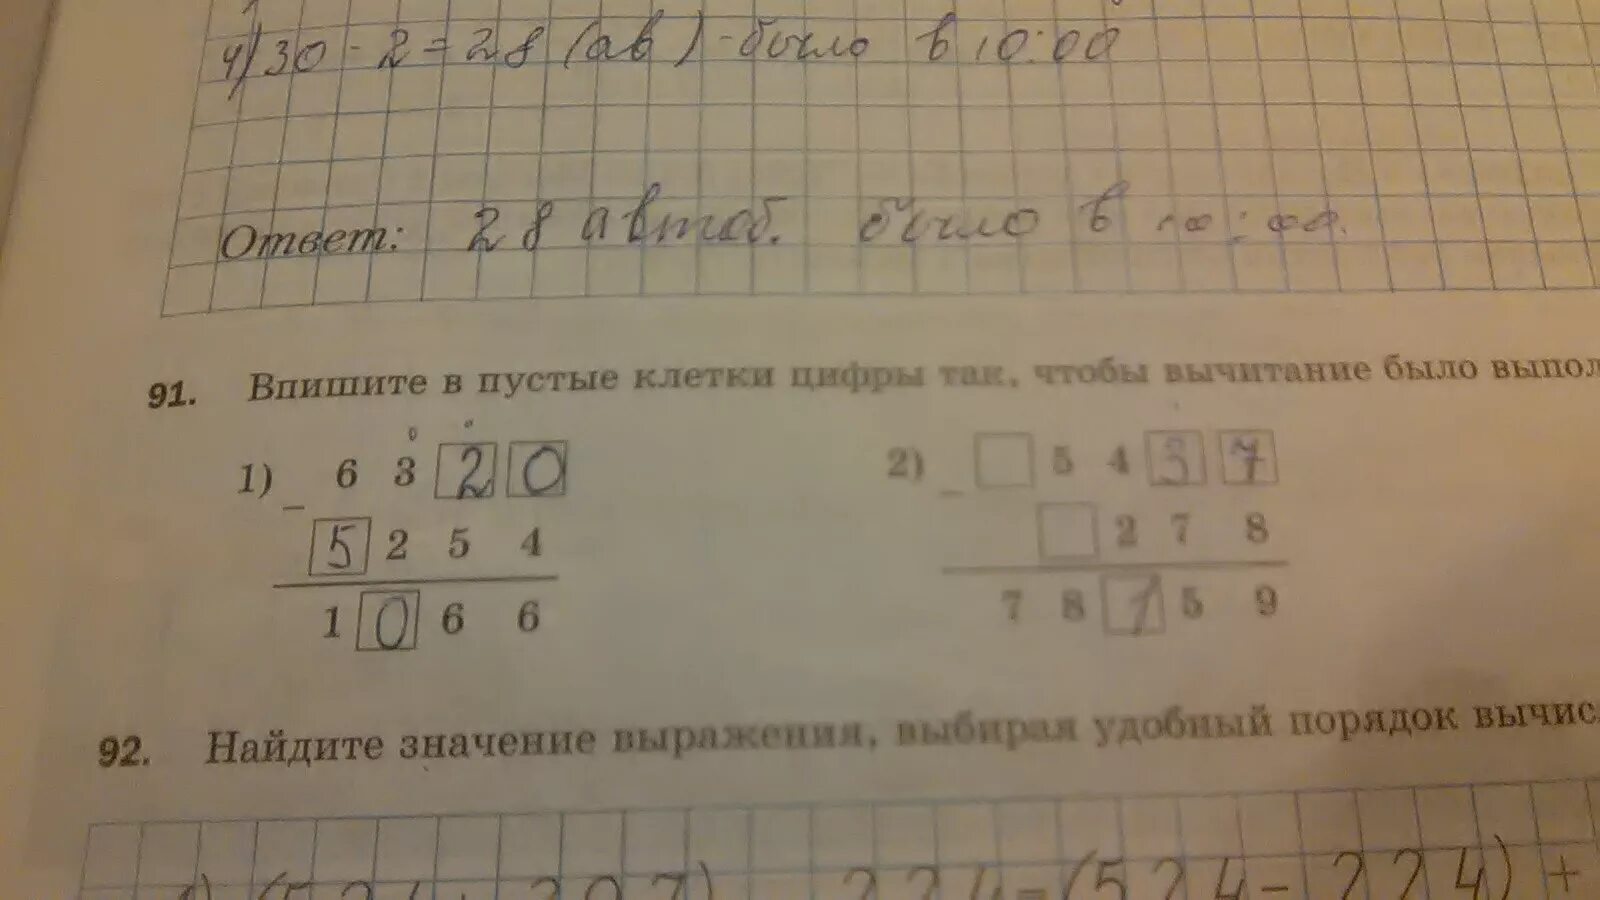 4) 30 - 2 = 28 (ав) - было в 10:00
Ответ: 28 автоб. было в 10:00.
91. Впишите в пустые клетки цифры так, чтобы вычитание было выпол
1) 6 3 2 0 2) 5 4 3 7
- 5 2 5 4 - 2 7 8
1 0 6 6 7 8 1 5 9
92. Найдите значение выражения, выбирая удобный порядок вычис
224-(524-224)+